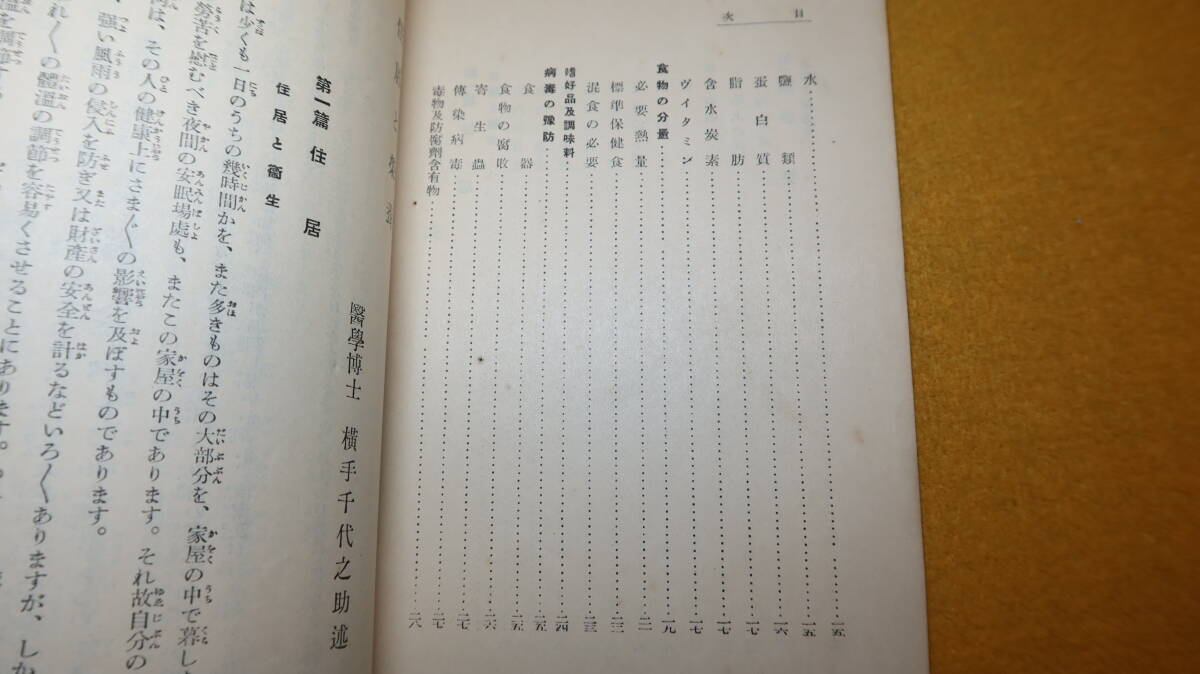 目次
水……一五
鹽類……一五
蛋白質……一六
脂肪……一七
含水炭素……一七
ヴイタミン……一七
食物の分量……一九
必要熱量……二一
標準保健食……二三
混食の必要……二三
嗜好品及調味料……二四
病毒の豫防……二五
食器……二五
食物の腐敗……二六
寄生蟲……二七
傳染病毒……二七
毒物及防腐劑含有物……二八
醫學博士 橫手千代之助述
第一篇 住居
住居と衞生
は少くも一日のうちの幾時間かを、また多きものはその大部分を、家屋の中で暮し
勞苦を慰むべき夜間の安眠場處も、またこの家屋の中であります。それ故自分の
は、その人の健康上にさまぐの影響を及ぼすものであります。
强い風雨の侵入を防ぎ又は財產の安全を計るなどいろ〱ありますが、しか
れ〲の體溫の調節を容易くさせることにあります。
溫を調節す